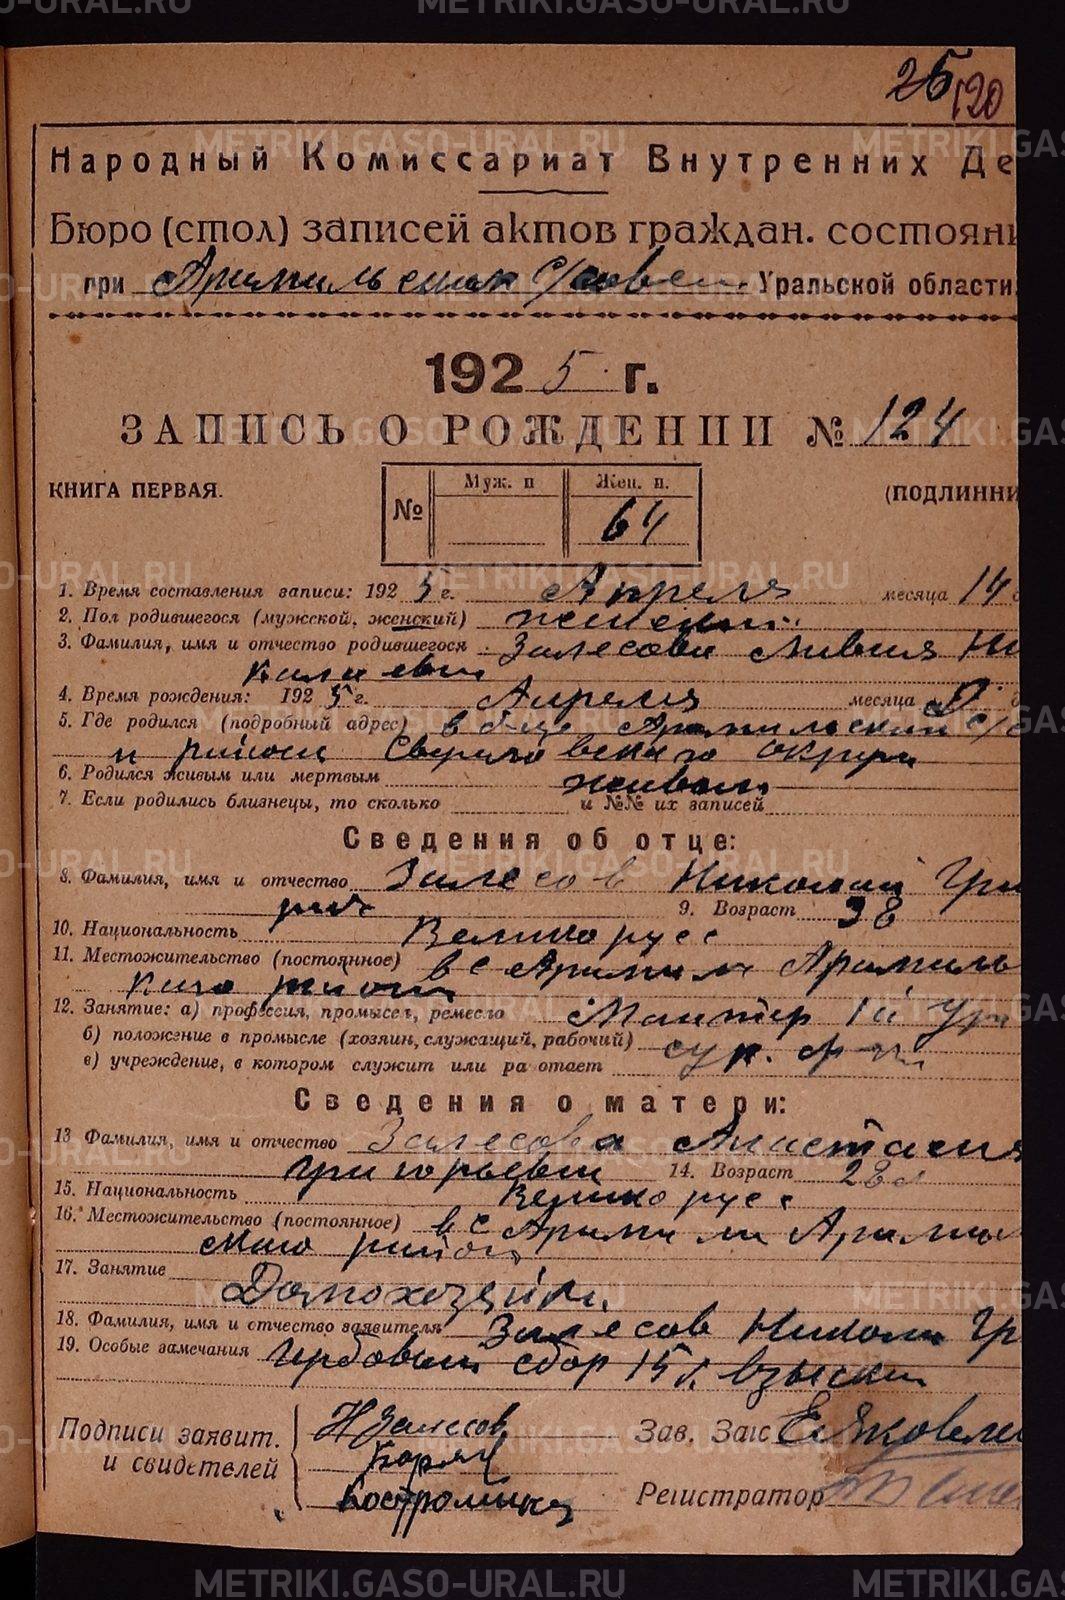 METRIKI.GASO-URAL.RU
25 120
Народный Комиссариат Внутренних Де
Бюро (стол) записей актов граждан. состояни
при Арамильском с/совет Уральской области.
1925 г.
ЗАПИСЬ О РОЖДЕНИИ № 124
КНИГА ПЕРВАЯ. (ПОДЛИННИ
№ Муж. п Жен. п.
64
1. Время составления записи: 1925 г. Апреля месяца 14
2. Пол родившегося (мужской, женский) женский
3. Фамилия, имя и отчество родившегося Залесова Ливия Ни
колаевн
4. Время рождения: 1925 г. Апреля месяца
5. Где родился (подробный адрес) в б-це Арамильский с/с
и район Свердловскаго округа
6. Родился живым или мертвым живым
7. Если родились близнецы, то сколько и №№ их записей
Сведения об отце:
8. Фамилия, имя и отчество Залесов Николай Гри
9. Возраст 38
10. Национальность Великорусс
11. Местожительство (постоянное) в с Арамили Арамиль
каго район
12. Занятие: а) профессия, промысел, ремесло
б) положение в промысле (хозяин, служащий, рабочий) сук. ф-ки
в) учреждение, в котором служит или ра отает
Сведения о матери:
13 Фамилия, имя и отчество Залесова Анастасия
Григорьевн 14. Возраст 28 л
15. Национальность Великорусс
16. Местожительство (постоянное) в с Арамили Арамил
скаго район
17. Занятие Домохозяйка
18. Фамилия, имя и отчество заявителя Залесов Никола Гр
19. Особые замечания Гербовый сбор 15 взыскан
Подписи заявит. Н Залесов Зав. Загс Е. Яковле
и свидетелей
Костромина Регистратор
METRIKI.GASO-URAL.RU